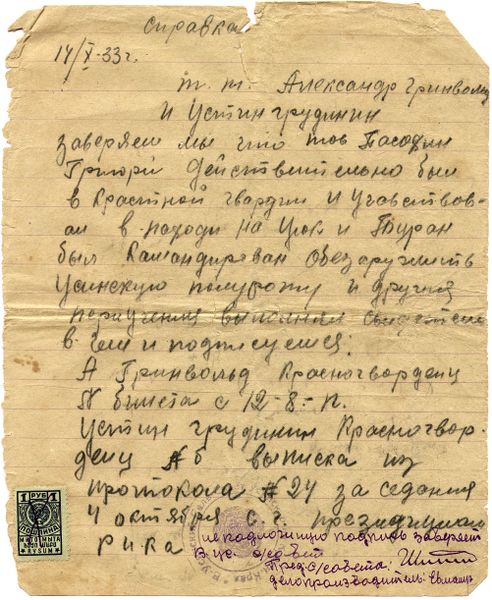 справка
14/X-33г.
т.т. Александр Гринвольд
и Устин Грудинин
заверяем мы что тов Пасадин
Григорий Действительно был
в Крастной гвардии и Учавствов-
ал в походи на Уюк и Туран
был Камандирован Обезаружить
Усинскую полуроту и другия
поручения выполнял свидетели
в чем и подписуемся:
А Гринвольд Красногварденц
N билета с 12-8-п.
Устин Грудинин Красногвар-
денц № 5 выписка из
протокола № 24 за седания
4 октября с.г. президиума
рика
1 РУБ 1
подпись заверяет
Пред. совета:
делопроизводитель: